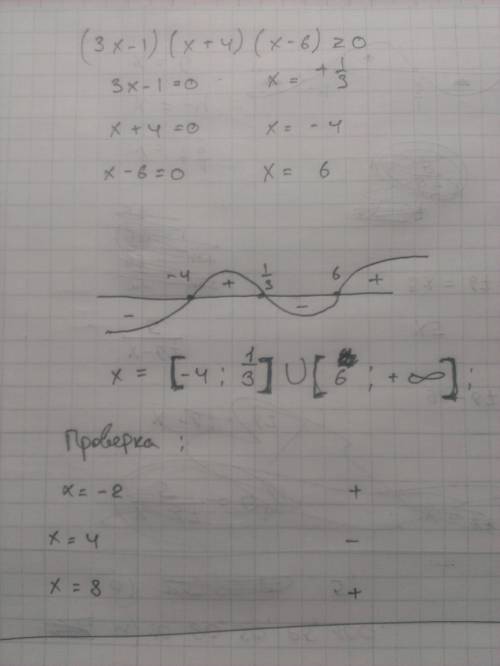 (3x-1) (x+4) (x-6) ≥ 0
3x-1=0 x = +1/3
x+4=0 x = -4
x-6=0 x = 6
-4 1/3 6
- + - +
x = [-4 ; 1/3] ∪ [6 ; +∞] ;
Проверка ;
x = -2 +
x = 4 -
x = 8 +